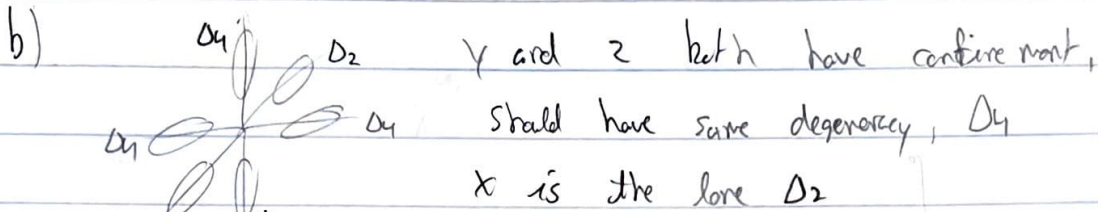 b)
Δ4
Δ2
Δ4
Δ4
Y and z both have confinement,
should have same degeneracy, Δ4
X is the lone Δ2